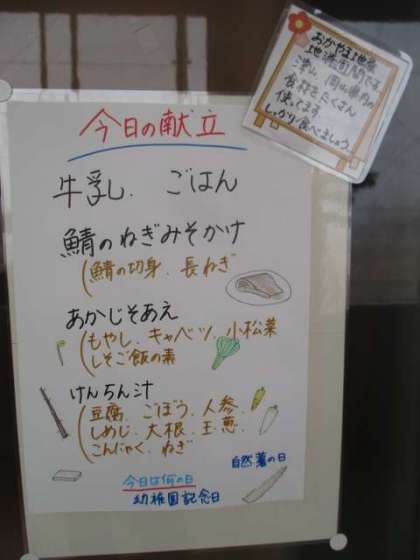 今日の献立
牛乳、ごはん
鯖のねぎみそかけ
(鯖の切身、長ねぎ
あかじそあえ
(もやし、キャベツ、小松菜
しそご飯の素
けんちん汁
(豆腐、ごぼう、人参、
しめじ、大根、玉葱、
こんにゃく、ねぎ
今日は何の日
幼稚園記念日
自然薯の日
おかやま地産
地消週間です。
津山、岡山県内の
食材をたくさん
使ってます。
しっかり食べましょう。